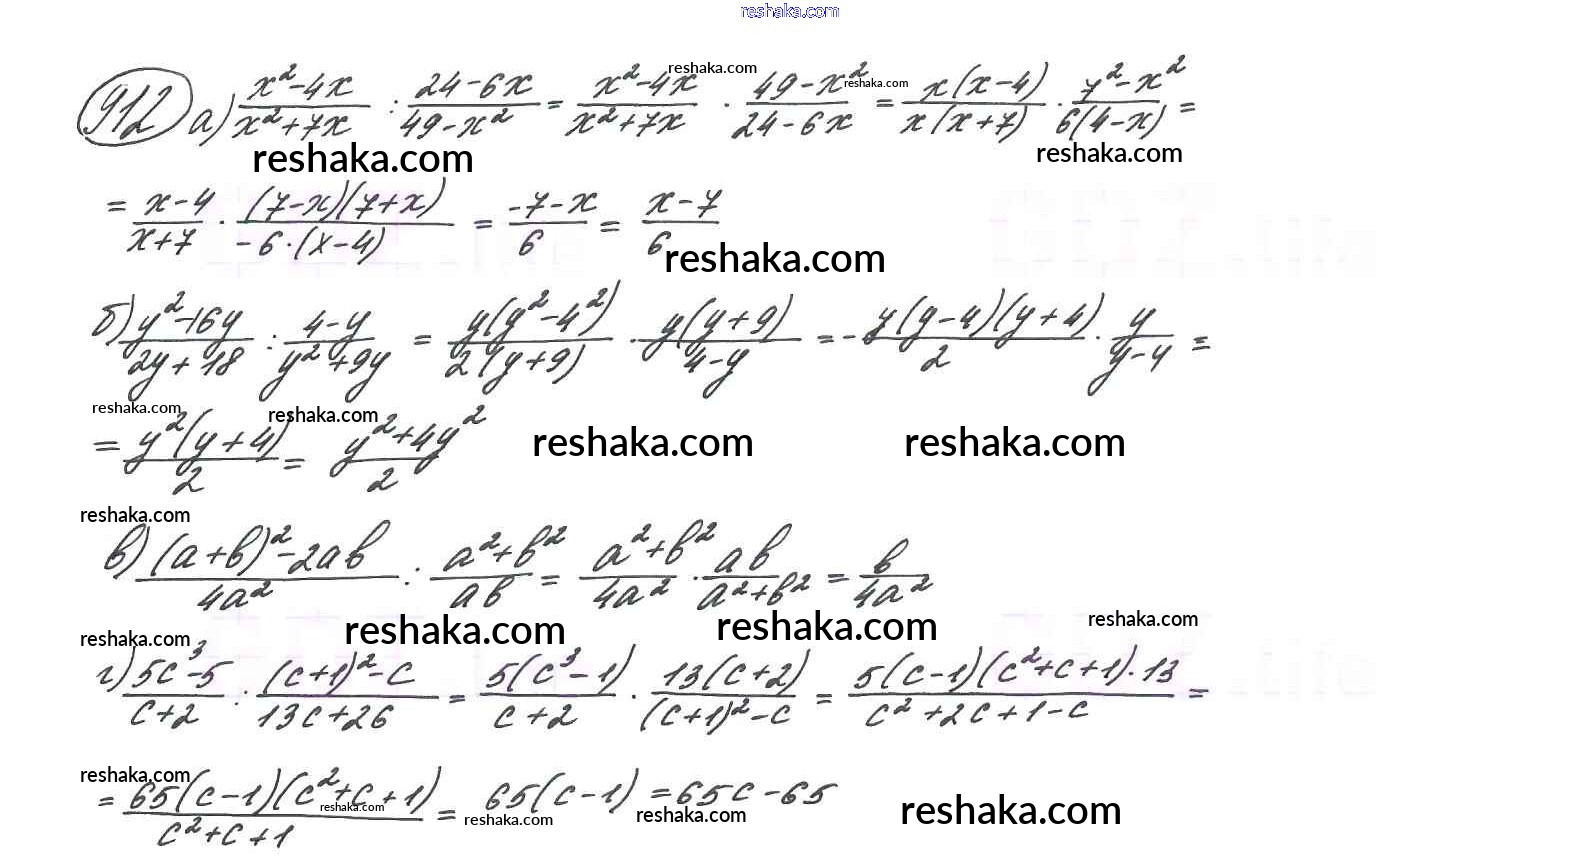 reshaka.com
912 а) (x²-4x)/(x²+7x) : (24-6x)/(49-x²) = (x²-4x)/(x²+7x) · (49-x²)/(24-6x) = x(x-4)/x(x+7) · (7²-x²)/6(4-x) =
reshaka.com
reshaka.com
reshaka.com
reshaka.com
= (x-4)/(x+7) · (7-x)(7+x)/-6·(x-4) = (-7-x)/6 = (x-7)/6
reshaka.com
б) (y²-16y)/(2y+18) : (4-y)/(y²+9y) = y(y²-4²)/2(y+9) · y(y+9)/(4-y) = - y(y-4)(y+4)/2 · y/(y-4) =
reshaka.com
reshaka.com
= y²(y+4)/2 = (y²+4y²)/2
reshaka.com
reshaka.com
reshaka.com
в) ((a+b)²-2ab)/4a² : (a²+b²)/ab = (a²+b²)/4a² · ab/(a²+b²) = b/4a²
reshaka.com
reshaka.com
reshaka.com
reshaka.com
г) (5c³-5)/(c+2) : ((c+1)²-c)/(13c+26) = 5(c³-1)/(c+2) · 13(c+2)/((c+1)²-c) = 5(c-1)(c²+c+1)·13/(c²+2c+1-c) =
reshaka.com
= 65(c-1)(c²+c+1)/(c²+c+1) = 65(c-1) = 65c-65
reshaka.com
reshaka.com
reshaka.com
reshaka.com